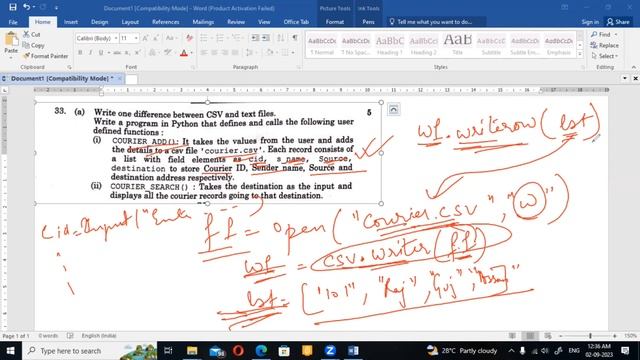 Document1 [Compatibility Mode] - Word (Product Activation Failed)
Picture Tools
Ink Tools
Tell me what you want to do
Calibri (Body)
11
Cut
Copy
Format Painter
Clipboard
Font
Paragraph
Styles
AaBbCcDc AaBbCcDc AaBbCc AaBbCcC AaB AaBbCcC AaBbCcDc AaBbCcDc AaBbCcDc
¶ Normal ¶ No Spac... Heading 1 Heading 2 Title Subtitle Subtle Em... Emphasis Intense E...
Document1 [Compatibility Mode] *
33. (a) Write one difference between CSV and text files. 5
Write a program in Python that defines and calls the following user
defined functions :
(i) COURIER_ADD() : It takes the values from the user and adds
the details to a csv file 'courier.csv'. Each record consists of
a list with field elements as cid, s_name, Source,
destination to store Courier ID, Sender name, Source and
destination address respectively.
(ii) COURIER_SEARCH() : Takes the destination as the input and
displays all the courier records going to that destination.
wf.writerow(lst)
Cid=Input("Ent
ff = open("Courier.CSV", "w")
wf = CSV.writer(f.f)
lst = ["101", "Raj", "Guj",
Page 1 of 1
0 words
English (India)
Type here to search
28°C Partly cloudy
ENG
12:36 AM
02-09-2023